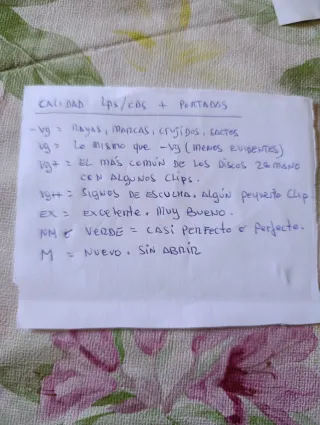 CALIDAD LPS/CDS + PORTADAS
-Vg = RAYAS, MARCAS, CRUJIDOS, SALTOS
Vg = LO MISMO QUE -Vg (MENOS EVIDENTES)
Vg+ = EL MÁS COMÚN DE LOS DISCOS 2ª MANO
CON ALGUNOS CLIPS.
Vg++ = SIGNOS DE ESCUCHA. ALGÚN PEQUEÑO CLIP.
EX = EXCELENTE. MUY BUENO.
NM VERDE = CASI PERFECTO o Perfecto.
M = NUEVO. SIN ABRIR